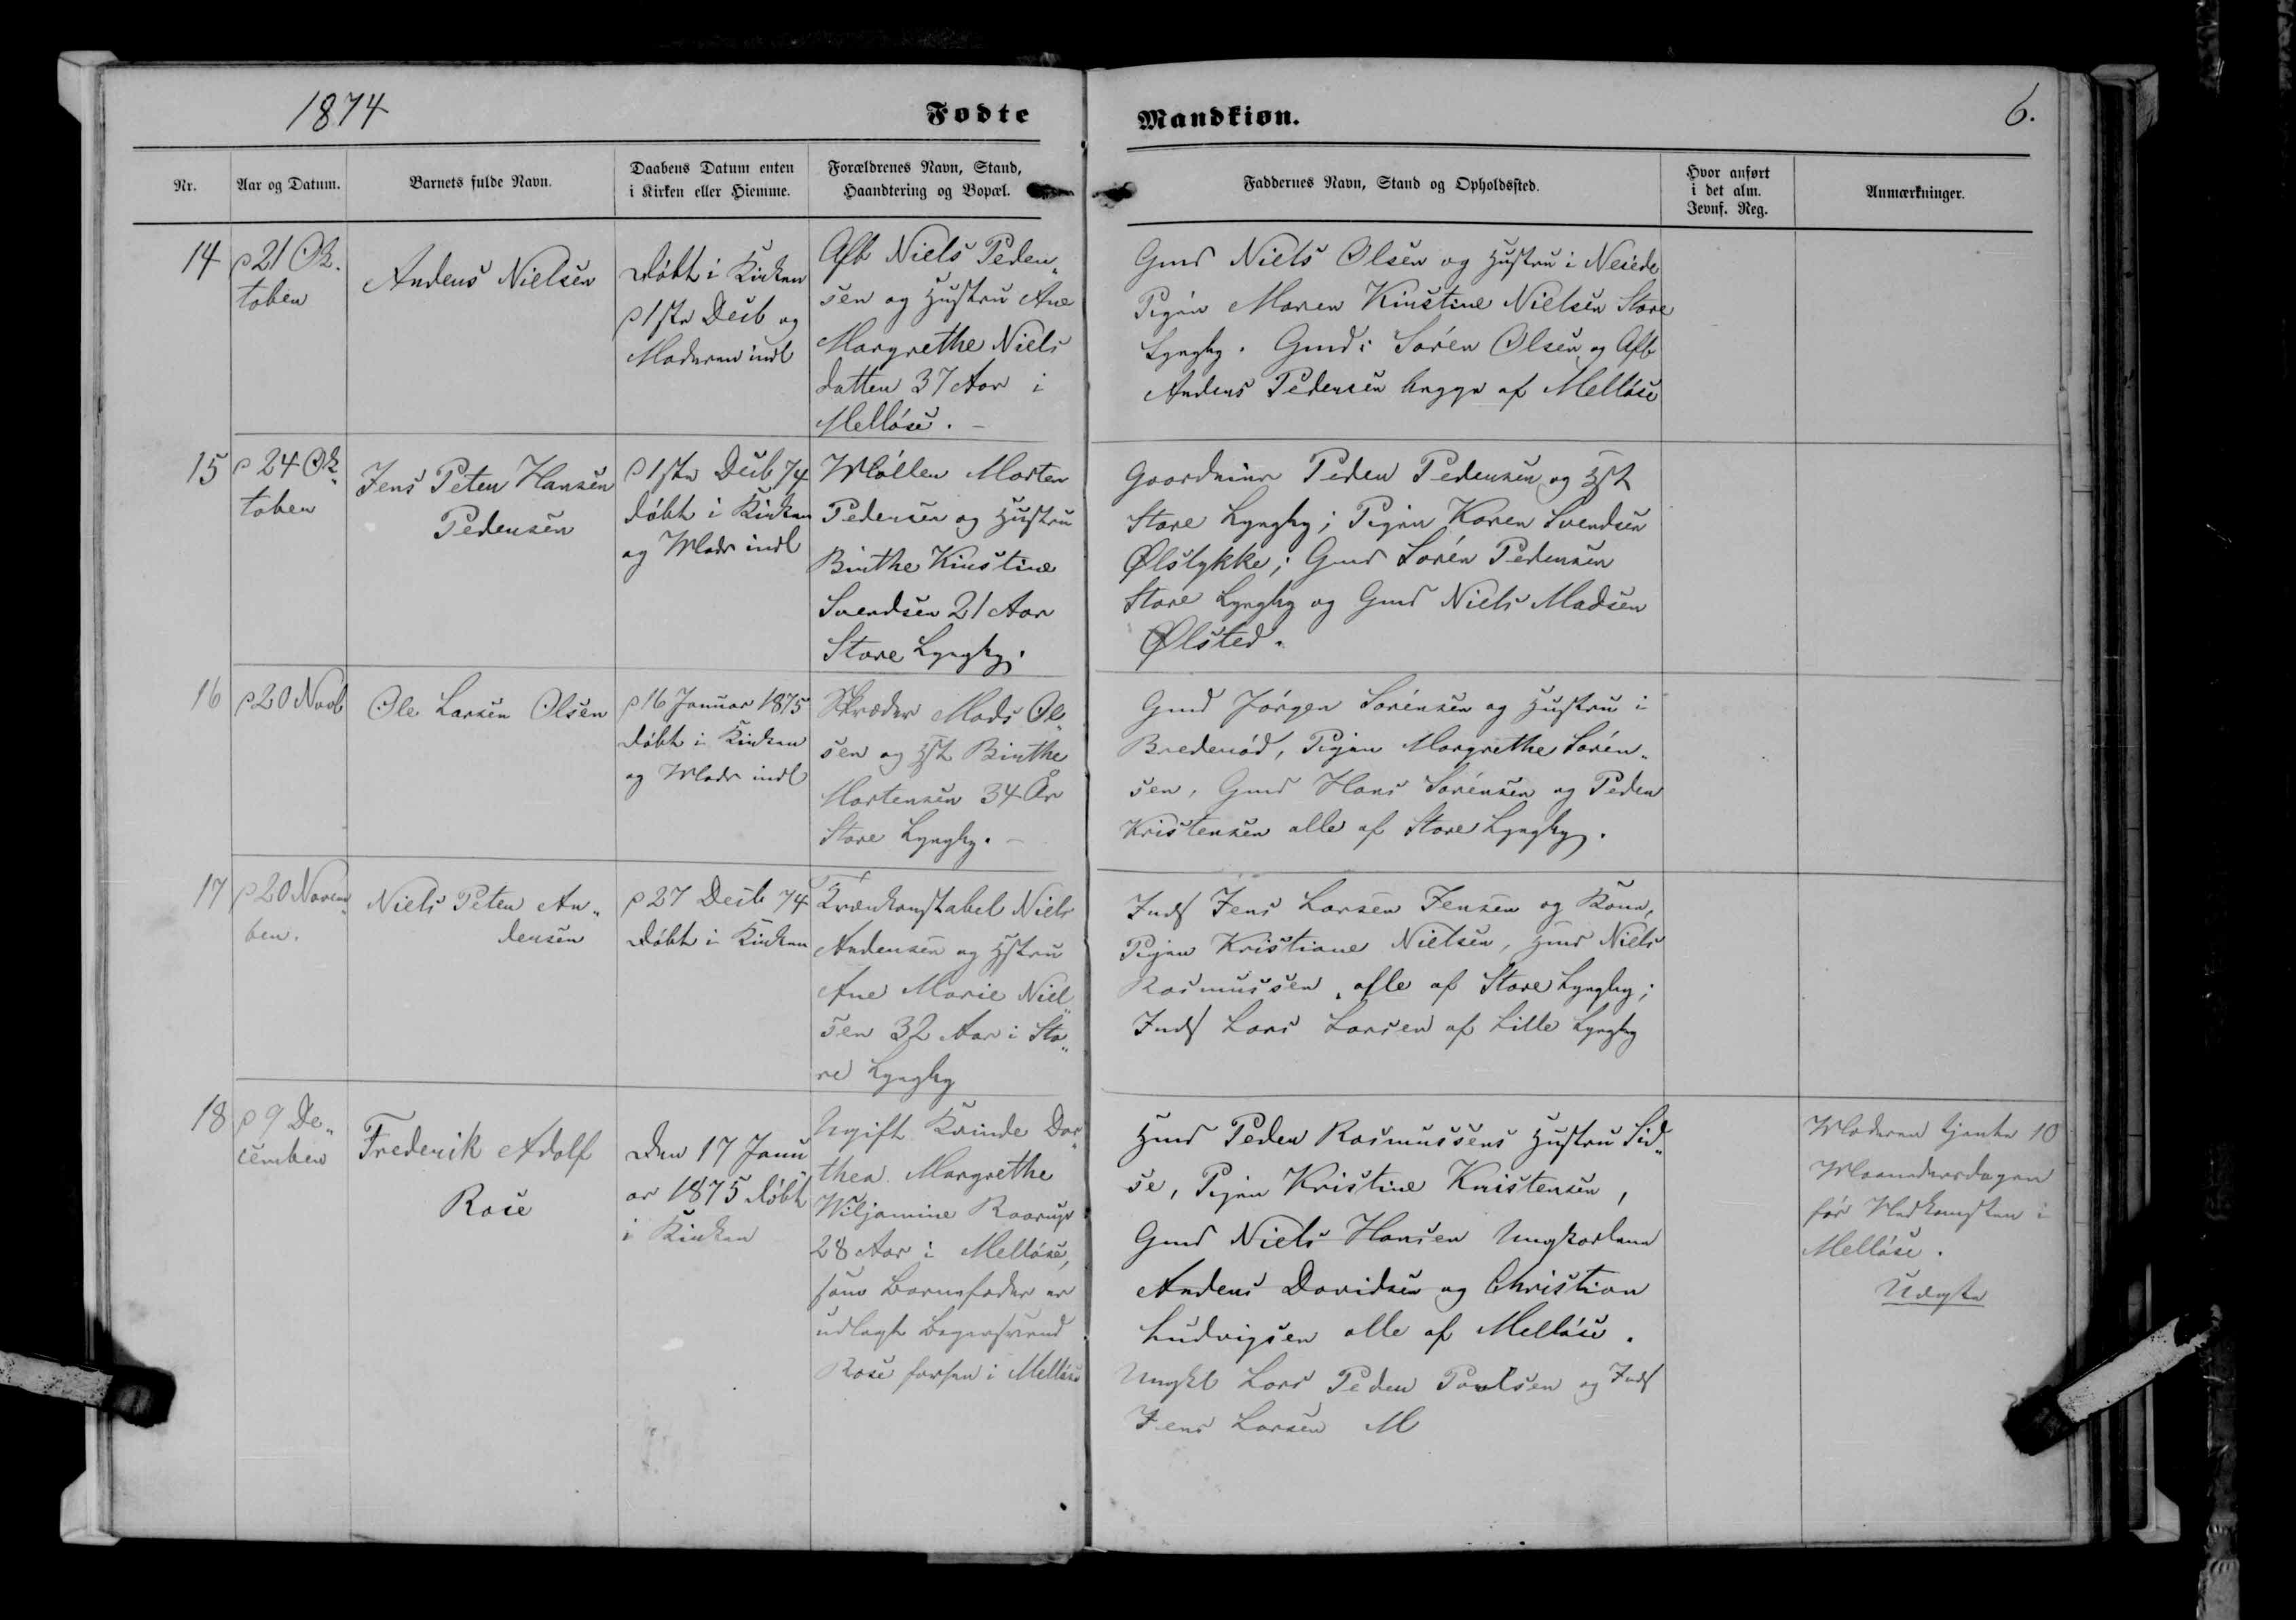 1874
Fødte
Mandkiøn.
6.
Nr.
Aar og Datum.
Barnets fulde Navn.
Daabens Datum enten
i Kirken eller Hiemme.
Forældrenes Navn, Stand,
Haandtering og Bopæl.
Faddernes Navn, Stand og Opholdssted.
Hvor anført
i det alm.
Jevnf. Reg.
Anmærkninger.
14
d 21 Ok-
tober
Anders Nielsen
døbt i Kirken
d 1ste Decb og
Moderen indl
Aftb Niels Peder-
sen og Hustru Ane
Margrethe Niels
datter 37 Aar i
Melløse.
Gmd Niels Olsen og Hustru i
Pigen Maren Kirstine Nielsen Store
Lyngby. Gmd: Søren Olsen og Aftb
Anders Pedersen begge af Melløse
15
d 24 Ok-
tober
Jens Peter Hansen
Pedersen
d 1ste Decb 74
døbt i Kirken
og Modr indl
Møller Morten
Pedersen og Hustru
Birthe Kirstine
Svendsen 21 Aar
Store Lyngby.
Gaardmier Peder Pedersen og Hst
Store Lyngby; Pigen Karen Svendsen
Ølstykke; Gmd Søren Pedersen
Store Lyngby og Gmd Niels Madsen
Ølsted.
16
d 20 Novb
Ole Larsen Olsen
d 16 Januar 1875
døbt i Kirken
og Modr indl
Skræder Mads Ol-
sen og Hst Birthe
Mortensen 34 År
Store Lyngby.
Gmd Jørgen Sørensen og Hustru i
Brederød, Pigen Margrethe Søren-
sen, Gmd Hans Sørensen og Peder
Kristensen alle af Store Lyngby.
17
d 20 Novem-
ber.
Niels Peter An-
dersen
d 27 Decb 74
døbt i Kirken
Niels
Andersen og Hstru
Ane Marie Niel-
sen 32 Aar i Sto-
re Lyngby
Inds Jens Larsen Jensen og Kone,
Pigen Kristiane Nielsen, Hmd Niels
Rasmussen, alle af Store Lyngby;
Inds Lars Larsen af Lille Lyngby
18
d 9 De-
cember
Frederik Adolf
Rose
Den 17 Janu-
ar 1875 døbt
i Kirken
Ugift Kvinde Dor-
thea Margrethe
Wiljamine Raarup
28 Aar i Melløse,
som Barnefader er
udlagt Bagersvend
Rose forhen i Melløse
Hmd Peder Rasmussens Hustru Sid-
se, Pigen Kristine Kristensen,
Gmd Niels Hansen Ungkarlene
Anders Davidsen og Christian
Ludvigsen alle af Melløse.
Ungkl Lars Peder Poulsen og Inds
Jens Larsen M
Moderen tjente 10
Maanedersdagen
før Nedkomsten i
Melløse.
Uægte